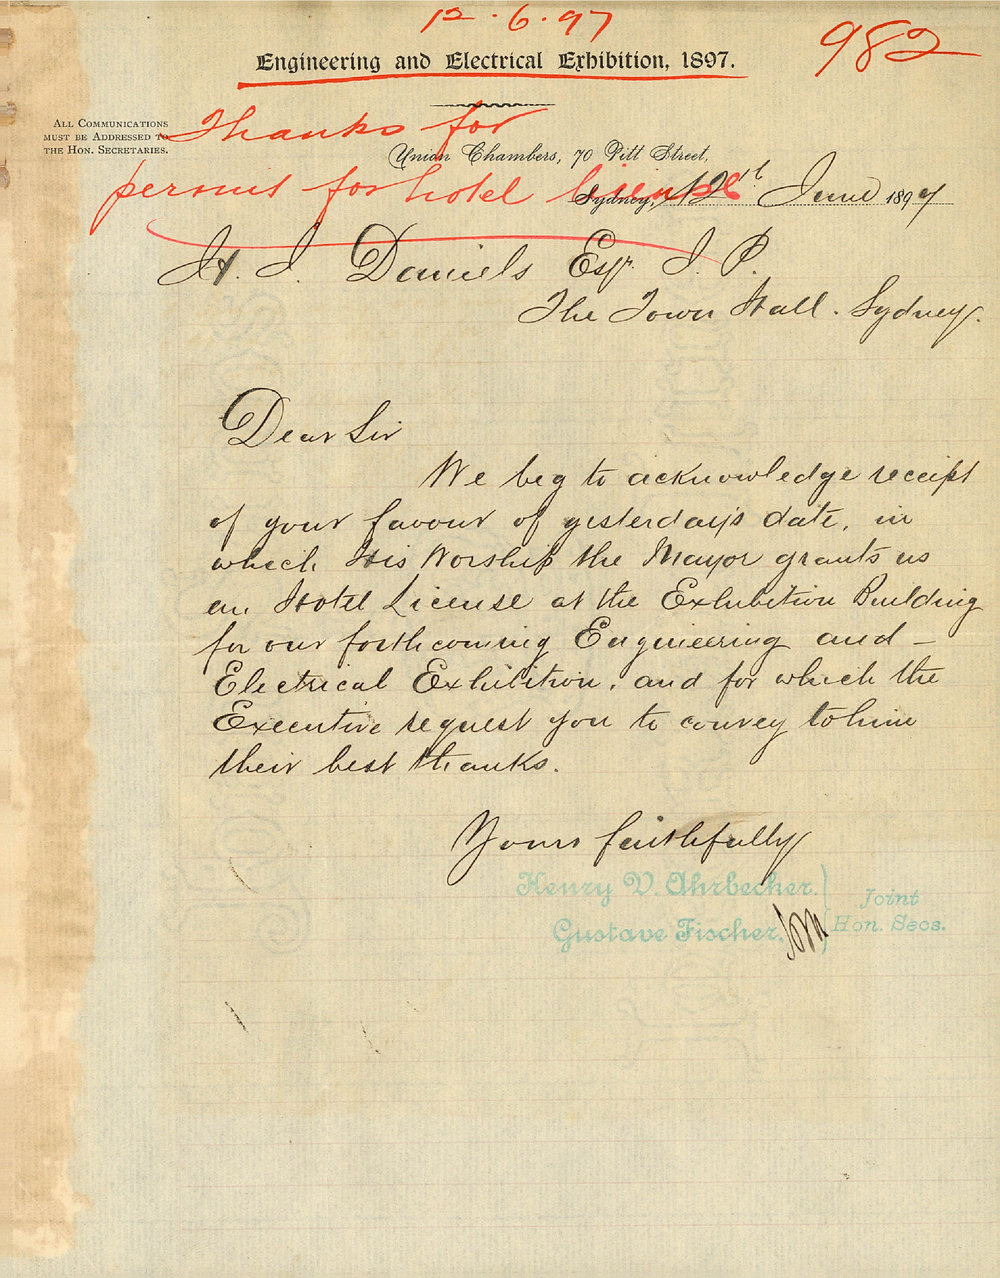 12.6.97
982
Engineering and Electrical Exhibition, 1897.
All Communications
must be Addressed to
the Hon. Secretaries.
Thanks for
permit for hotel license
Union Chambers, 70 Pitt Street,
Sydney, 12th June 1897
H. J. Daniels Esqr. J. P.
The Town Hall. Sydney.
Dear Sir
We beg to acknowledge receipt
of your favour of yesterday's date, in
which His Worship the Mayor grants us
an Hotel License at the Exhibition Building
for our forthcoming Engineering and
Electrical Exhibition, and for which the
Executive request you to convey to him
their best thanks.
Yours faithfully
Henry V. Ahrbecker.
Gustave Fischer,
Joint
Hon. Secs.